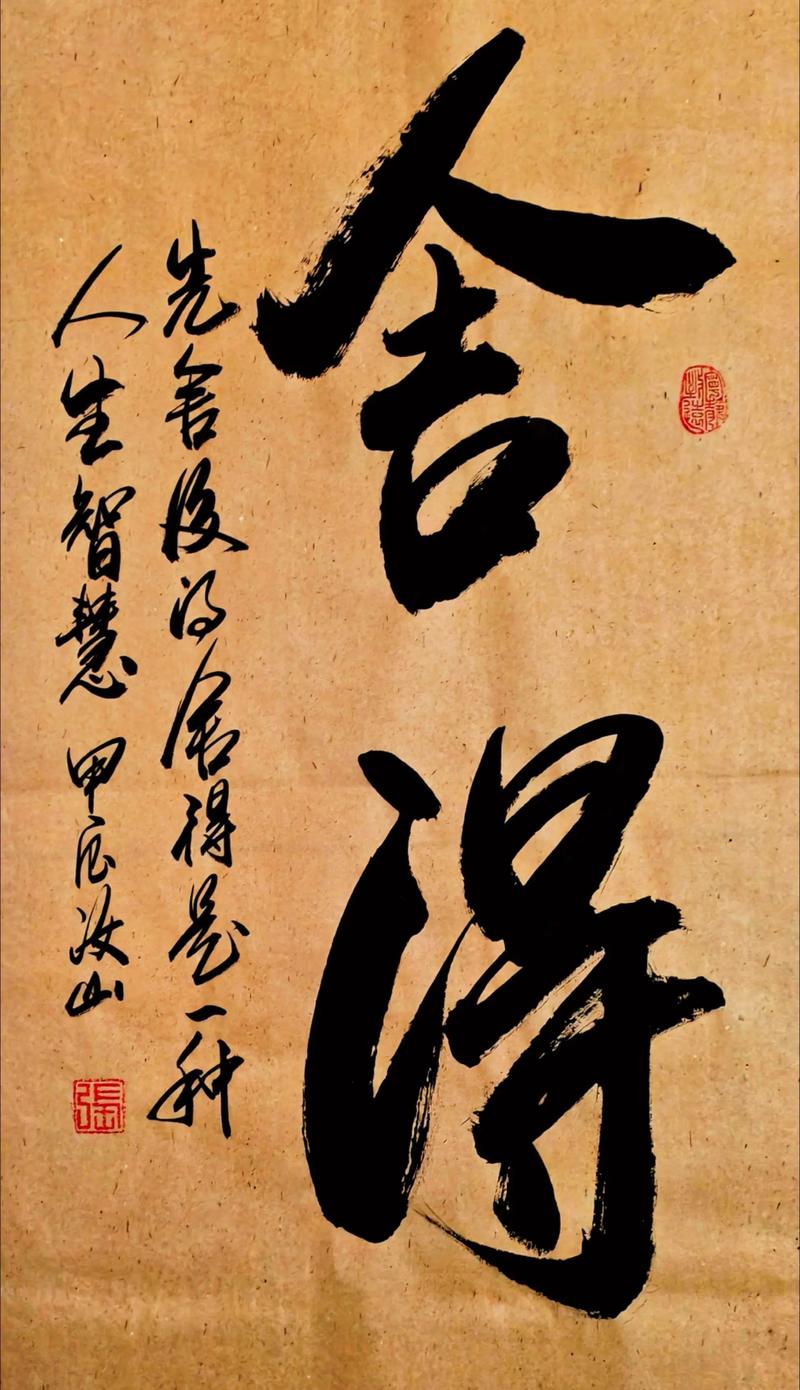 舍得
先舍後得舍得是一种
人生智慧 甲辰 汝山
張